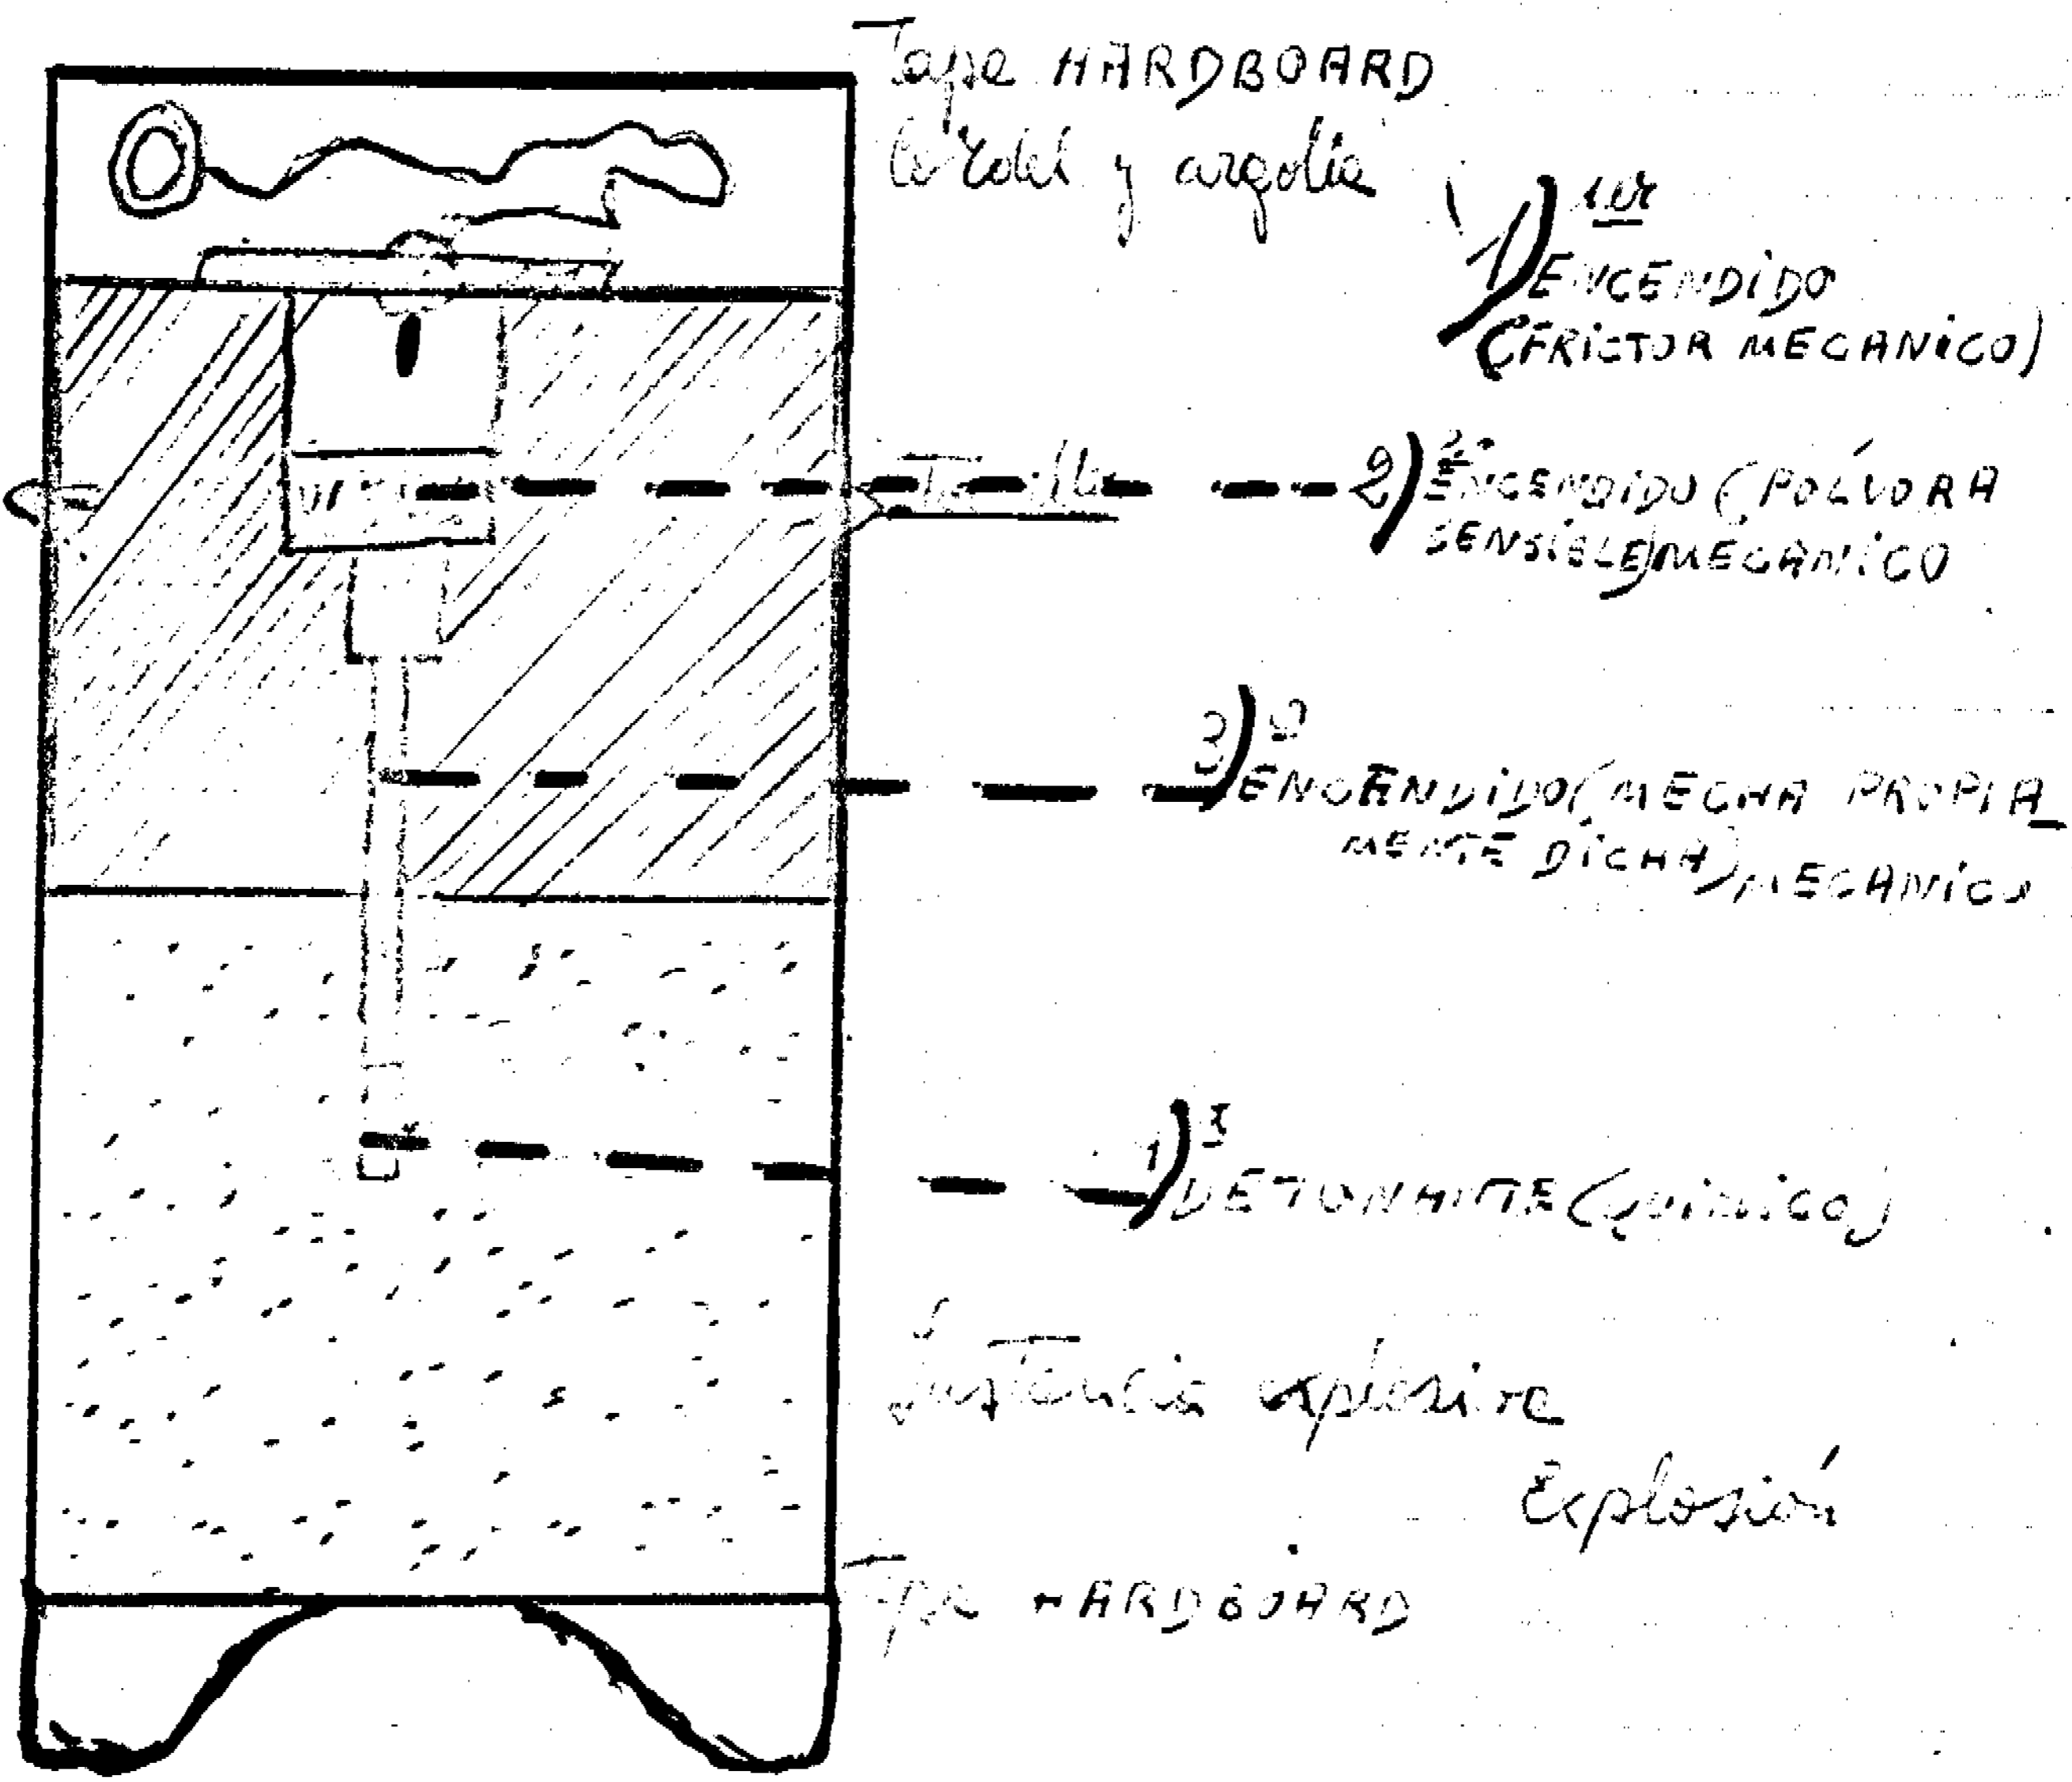 Tapa HARDBOARD
Cordel y argolla
1) 1er
ENCENDIDO
(FRICTOR MECANICO)
Tornillo
2) 2º
ENCENDIDO (PÓLVORA
SENSIBLE) MECÁNICO
3) º
ENCENDIDO (MECHA PROPIA_
MENTE DICHA) MECANICO
1)
DETONANTE (QUIMICO)
Sustancia explosiva
Explosión
Tapa HARDBOARD